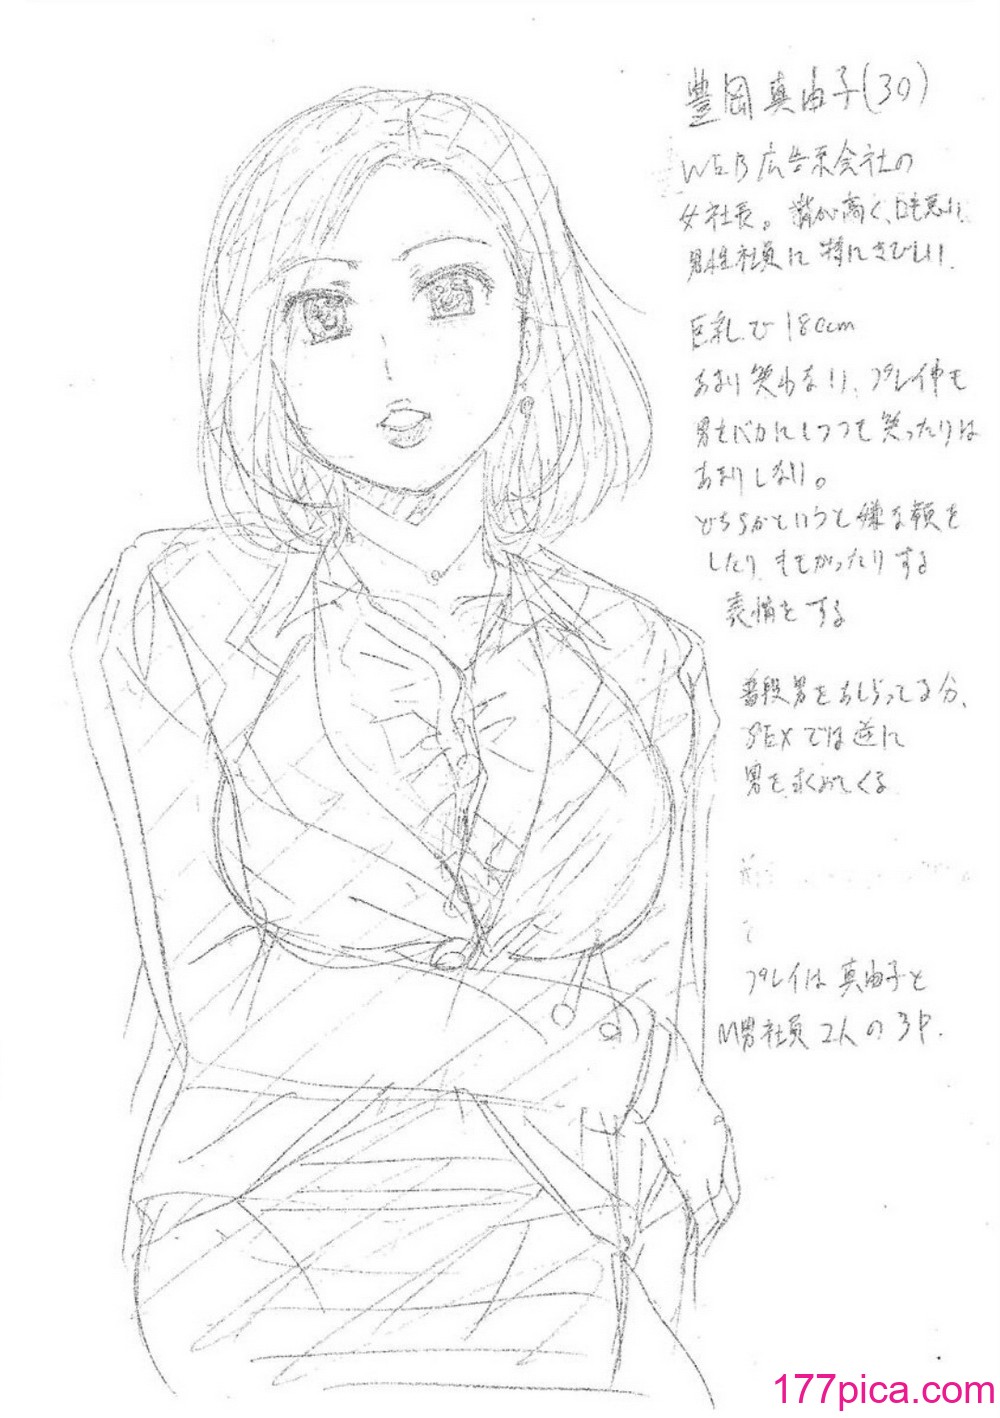 豊岡真由子(30)
WEB広告系会社の
女社長。背が高く、口も悪い、
男性社員に特にきびしい、
巨乳で180cm
あまり笑わない、プレイ中も
男をバカにしつつも笑ったりは
あまりしない。
どちらかというと嫌な顔を
したりもだがったりする
表情をする
普段男をあしらってる分、
SEXでは逆に
男を求めてくる
プレイは真由子と
M男社員2人の3P.
177pica.com